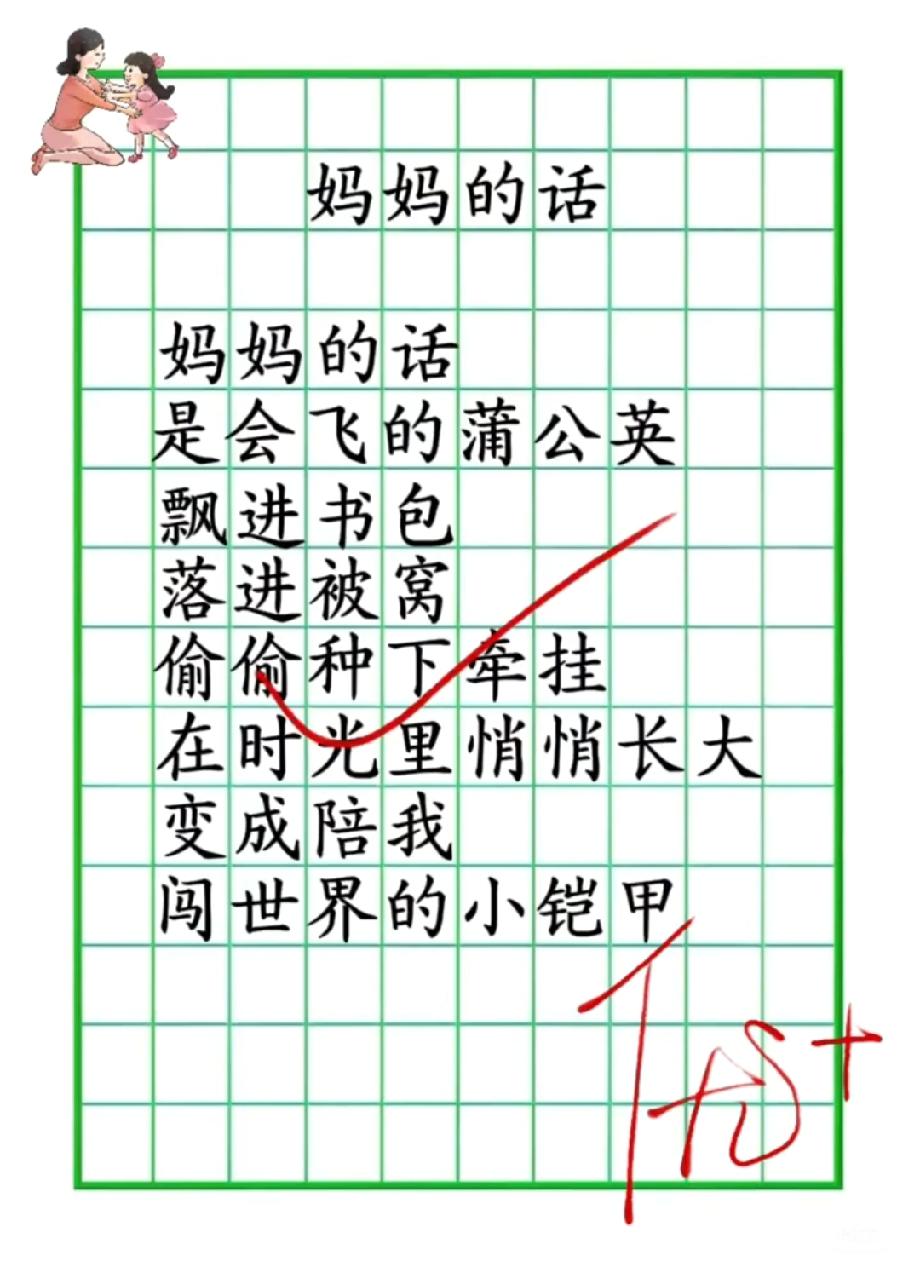 妈妈的话
妈妈的话
是会飞的蒲公英
飘进书包
落进被窝
偷偷种下牵挂
在时光里悄悄长大
变成陪我
闯世界的小铠甲
优+